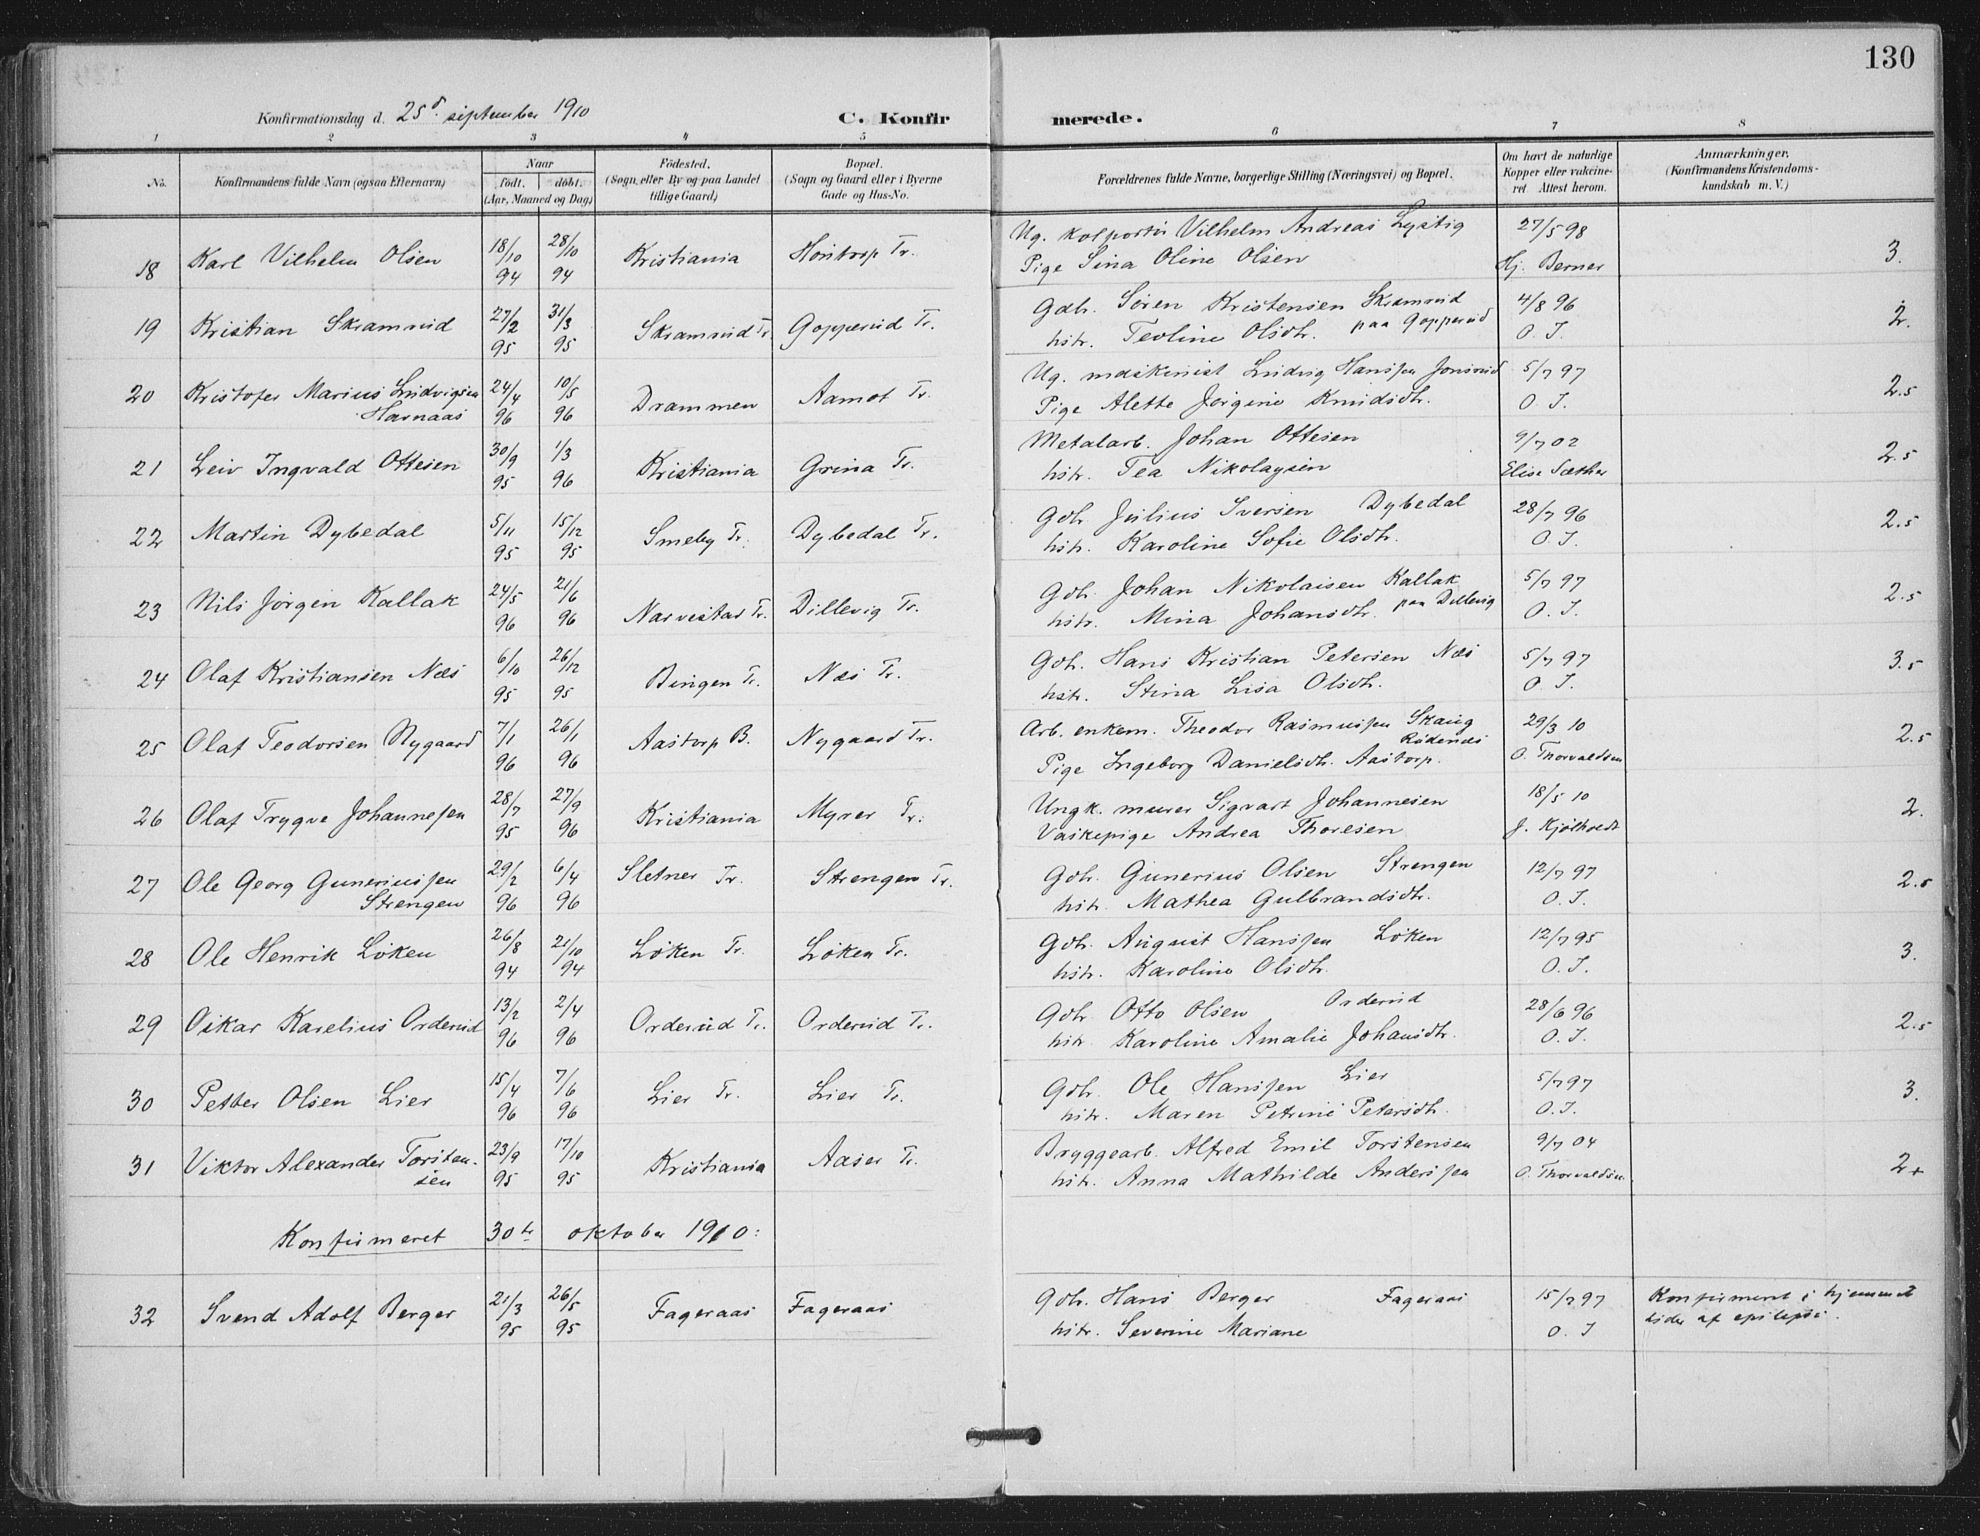 130
Konfirmationsdag d. 25d september 1910 C. Konfirmerede.
1 2 3 4 5 6 7 8
No. Konfirmandens fulde Navn (ogsaa Efternavn) Naar født. døbt. (Aar, Maaned og Dag) Fødested. (Sogn eller By og paa Landet tillige Gaard) Bopæl. (Sogn og Gaard eller i Byerne Gade og Hus-No. Forældrenes fulde Navne, borgerlige Stilling (Næringsvei) og Bopæl. Om havt de naturlige Kopper eller vakcineret Attest herom. Anmærkninger. (Konfirmandens Kristendomskundskab m. V.)
18 Karl Vilhelm Olsen 18/10 94 28/10 94 Kristiania Höntorp Tr. Ug. kolportör Vilhelm Andreas Lystig 27/5 98 3.
Pige Sina Oline Olsen Hj. Berner
19 Kristian Skramrud 27/2 95 31/3 95 Skramrud Tr. Gopperud Tr. Gdbr. Sören Kristensen Skramrud 4/8 96 2.
hstr. Teoline Olsdtr. paa Gopperud O. J.
20 Kristofer Marius Ludvigsen 24/4 96 10/5 96 Drammen Aamot Tr. Ug. maskinist Ludvig Hanssen Jonsrud 5/7 97 2.5
Harnaas Pige Alette Jörgine Knudsdtr. O. J.
21 Leiv Ingvald Ottesen 30/9 95 1/3 96 Kristiania Grina Tr. Metalarb. Johan Ottesen 9/7 02 2.5
hstr. Tea Nikolaysen Elise Sæther
22 Martin Dybedal 5/11 95 15/12 95 Smeby Tr. Dybedal Tr. Gdbr. Julius Iversen Dybedal 28/7 96 2.5
hstr. Karoline Sofie Olsdtr. O. J.
23 Nils Jörgen Kallak 24/5 96 21/6 96 Narvestad Tr. Dillevig Tr. Gdbr. Johan Nikolaisen Kallak 5/7 97 2.5
hstr. Mina Johansdtr. paa Dillevig O. J.
24 Olaf Kristiansen Næs 6/10 95 26/12 95 Bingen Tr. Næs Tr. Gdbr. Hans Kristian Petersen Næs 5/7 97 3.5
hstr. Stina Lisa Olsdtr. O. J.
25 Olaf Teodorsen Nygaard 7/1 96 26/1 96 Aastorp B. Nygaard Tr. Arb. enkem. Theodor Rasmussen Skaug 29/3 10 2.5
Rödenes
Pige Ingeborg Danielsdtr. Aastorp. O. Thorvaldsen
26 Olaf Trygve Johannesen 28/7 95 27/9 96 Kristiania Myrer Tr. Ungk. murer Sigvart Johannesen 18/5 10 2.
Vaskepige Andrea Thoresen
27 Ole Georg Guneriussen 29/2 96 6/4 96 Sletner Tr. Strengen Tr. Gdbr. Gunerius Olsen Strengen 12/7 97 2.5
Strengen hstr. Mathea Gulbrandsdtr. O. J.
28 Ole Henrik Löken 26/8 94 21/10 94 Löken Tr. Löken Tr. Gdbr. August Hanssen Löken 12/7 95 3.
hstr. Karoline Olsdtr. O. J.
29 Oskar Karelius Orderud 13/2 96 2/4 96 Orderud Tr. Orderud Tr. Gdbr. Otto Olsen Orderud 28/6 96 2.5
hstr. Karoline Amalie Johansdtr. O. J.
30 Petter Olsen Lier 15/4 96 7/6 96 Lier Tr. Lier Tr. Gdbr. Ole Hanssen Lier 5/7 97 3.
hstr. Maren Petrine Petersdtr. O. J.
31 Viktor Alexander Torsten- 23/9 95 17/10 95 Kristiania Aaser Tr. Bryggearb. Alfred Emil Torstensen 9/7 04 2+
sen hstr. Anna Mathilde Anderssen O. Thorvaldsen
Konfirmeret 30te oktober 1910:
32 Svend Adolf Berger 21/3 95 26/5 95 Fageraas Fageraas Gdbr. Hans Berger Fageraas 15/7 97 Konfirmeret i hjemmet
hstr. Severine Mariane O. J lider af epilepsi.